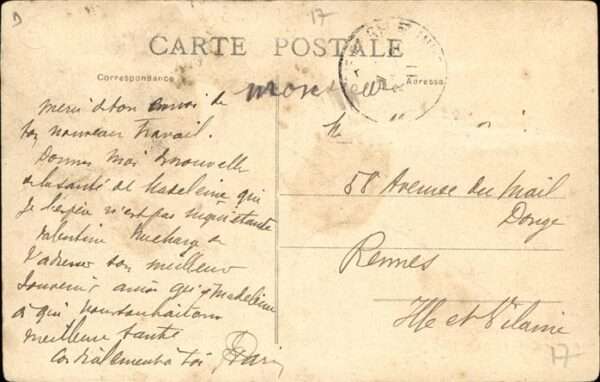 17
CARTE POSTALE
Correspondance
Adresse
Monsieur
merci de ton envoi de
ton nouveau travail.
Donnes moi
de la santé de Madeleine qui
je l'espère n'est pas inquiétante
Valentine me charge de
t'adresser son meilleur
souvenir ainsi qu'à Madeleine
à qui nous souhaitons
meilleure santé
Cordialement à toi
58 Avenue du Mail
Donge
Rennes
Ille et Vilaine
17